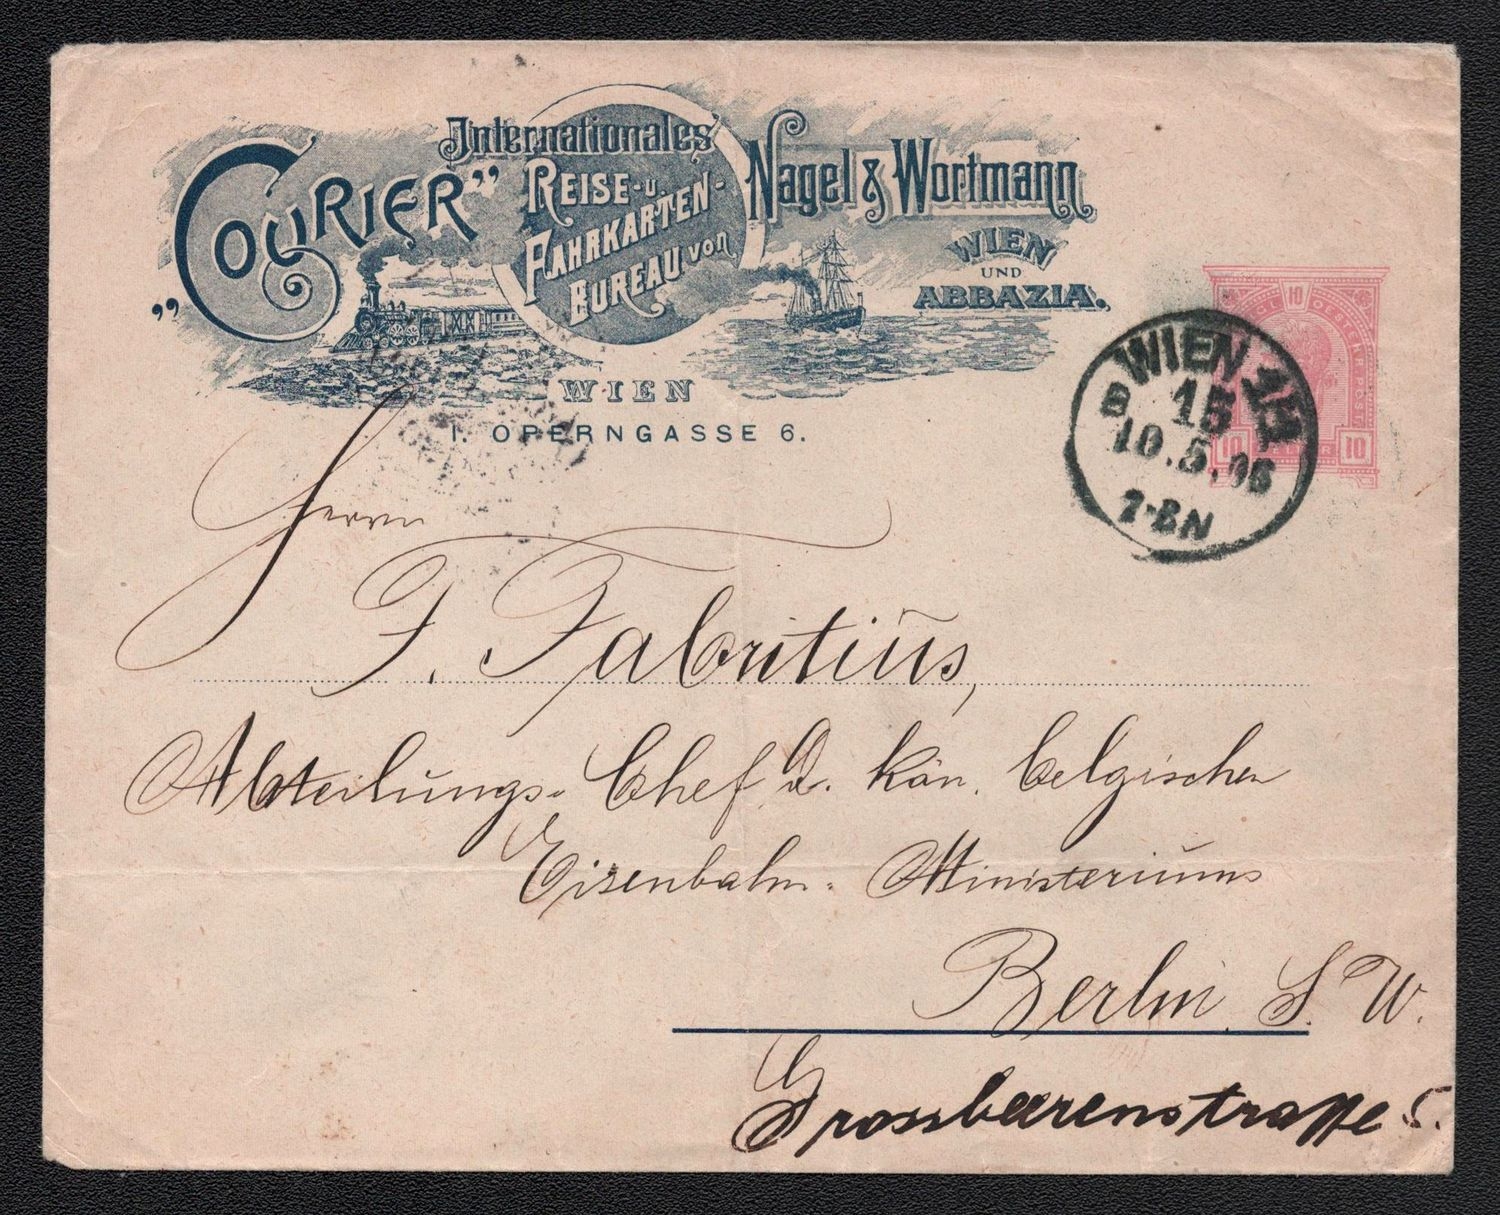 „COURIER”
Internationales
REISE- u.
FAHRKARTEN-
BUREAU von
Nagel & Wortmann
WIEN
UND
ABBAZIA.
WIEN
I. OPERNGASSE 6.
10
10
10
WIEN
15
10.5.
Herrn
F. Fabritiūs,
Abteilungs-Chef d. kön. belgischen
Eisenbahn-Ministeriums
Berlin, S. W.
Grossbeerenstrasse 5.